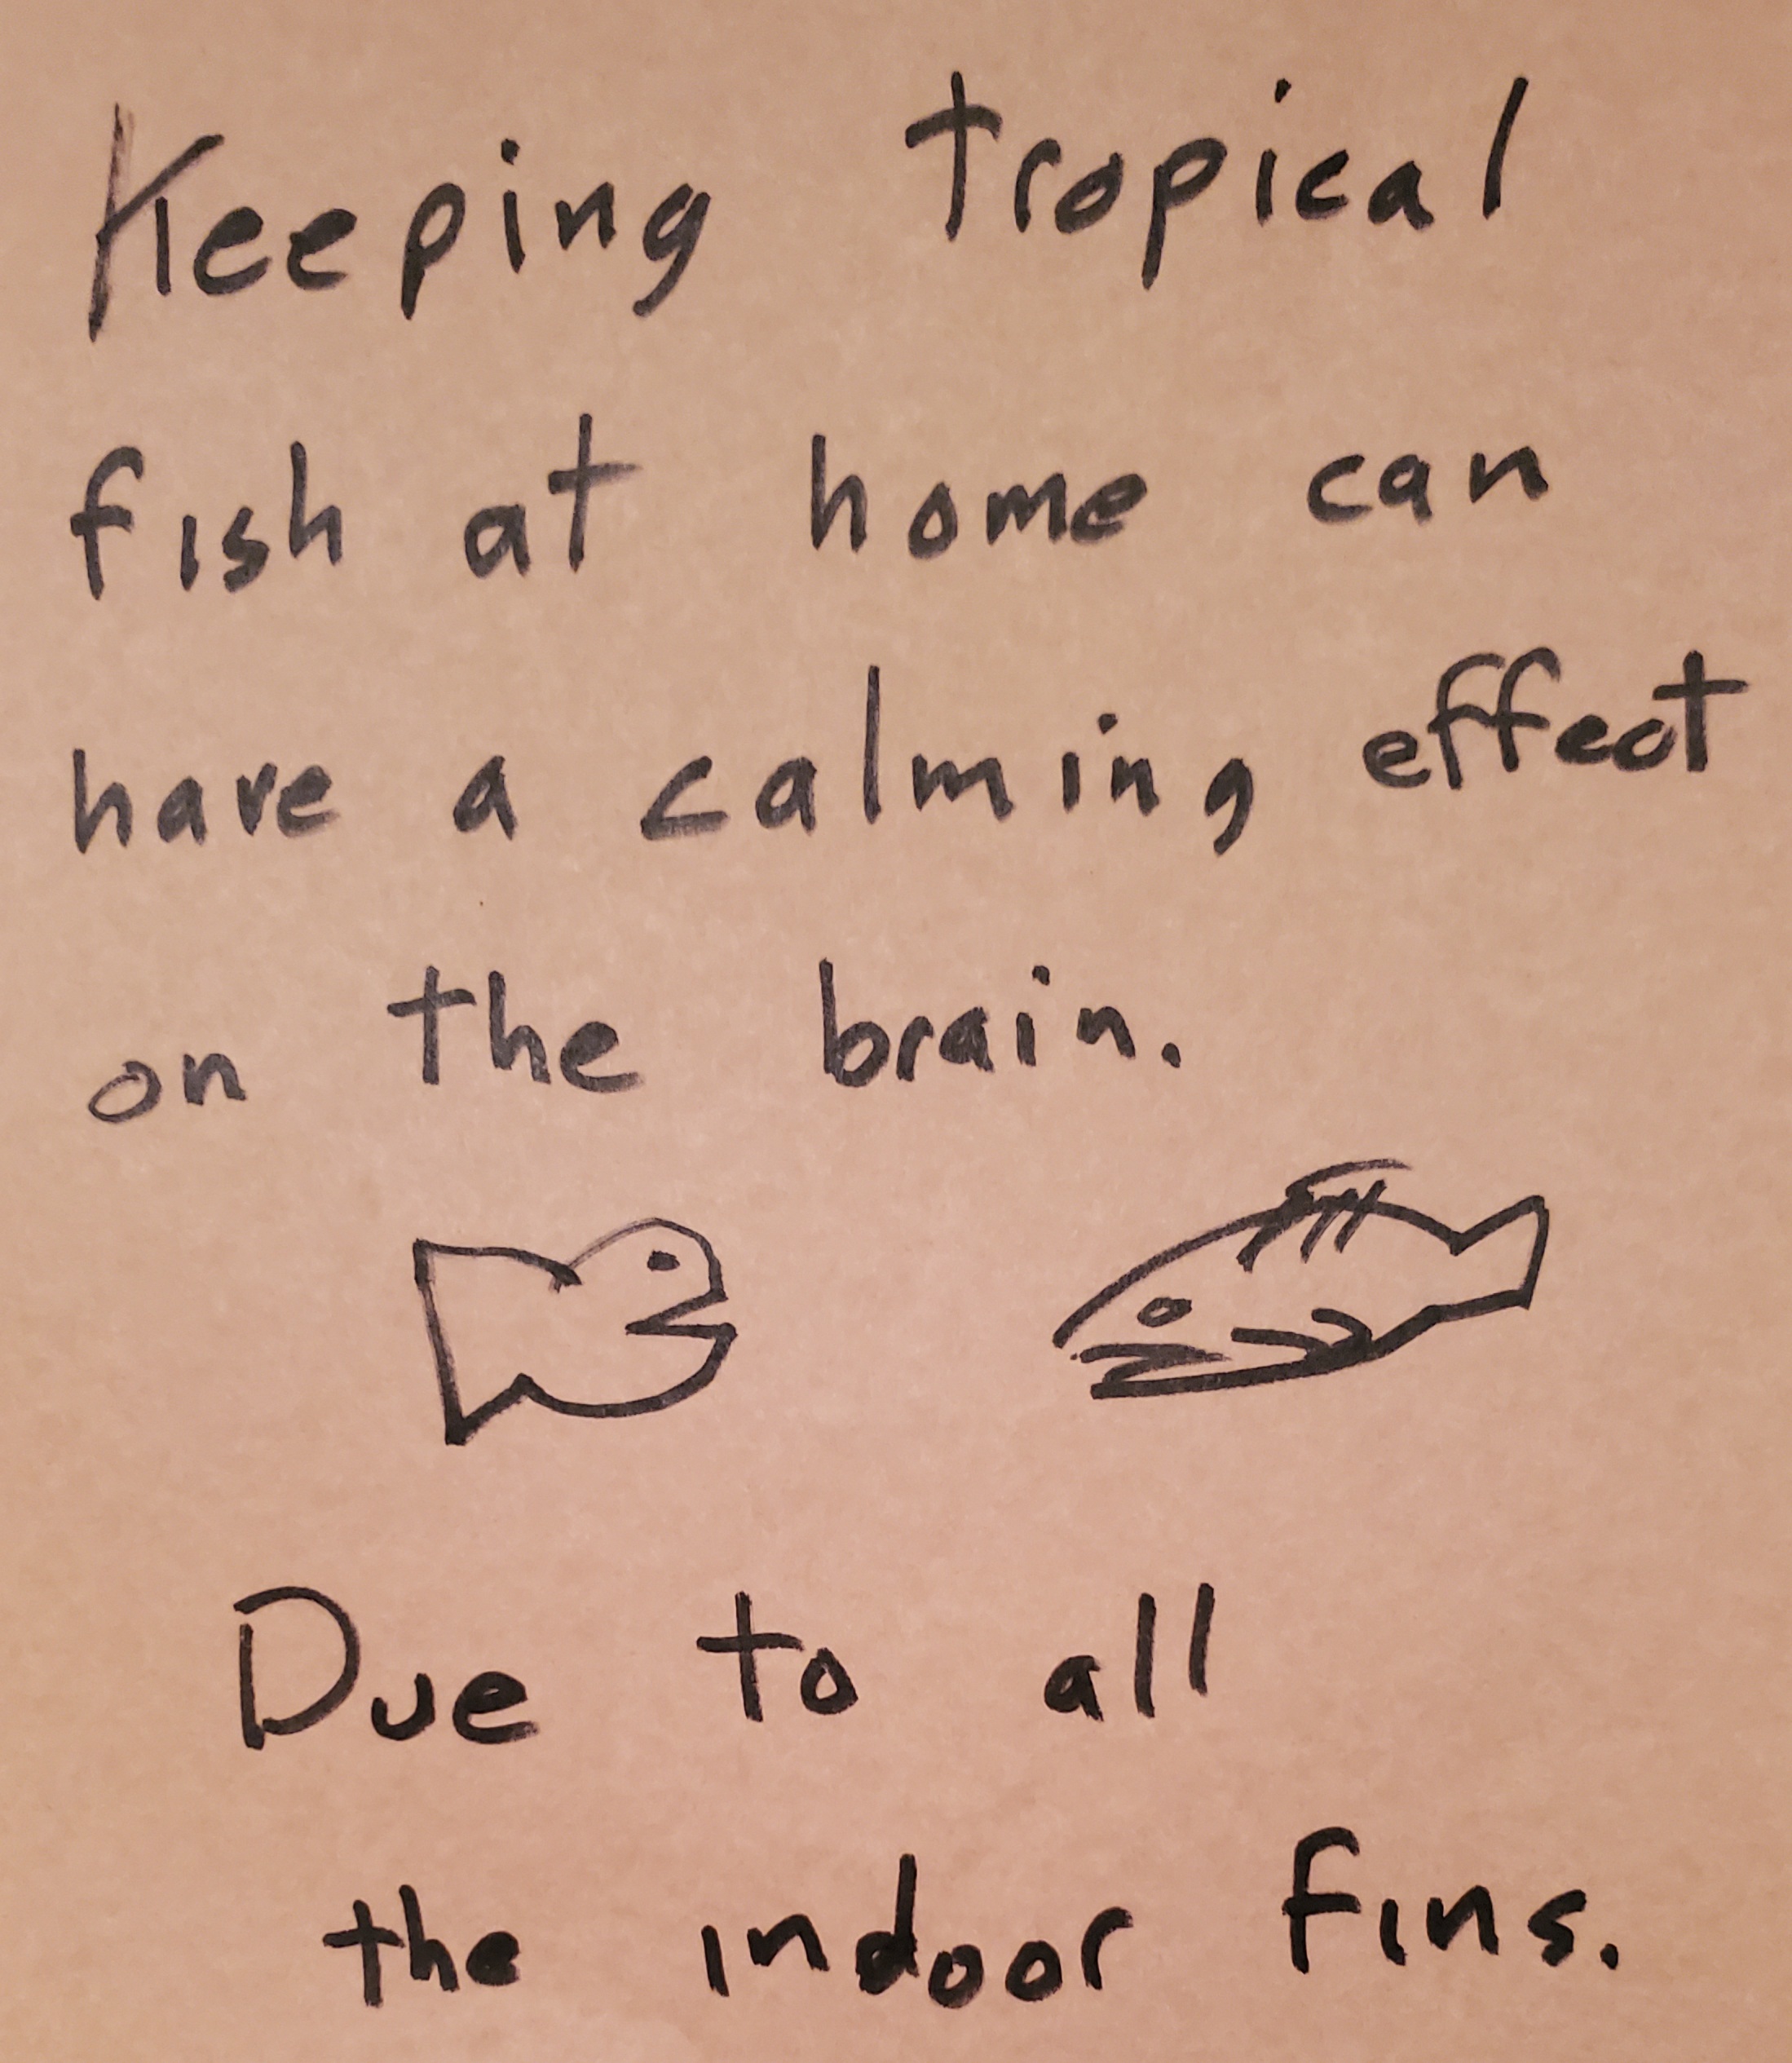 Keeping tropical
fish at home can
have a calming effect
on the brain.
Due to all
the indoor fins.